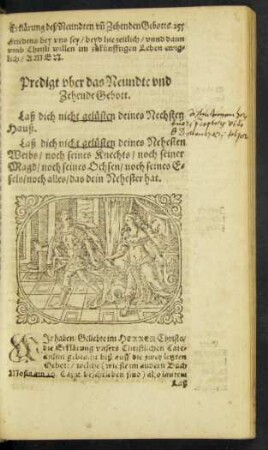 Erklärung deß Neundten vñ Zehenden Gebotts. 255
friedens bey vns sey / beyde hie zeitlich / vnnd dann
vmb Christi willen im zukünfftigen Leben ewig-
lich / AMEN.
Predigt vber das Neundte vnd
Zehende Gebott.
Laß dich nicht gelüsten deines Nechsten
Hauß.
Laß dich nicht gelüsten deines Nehesten
Weibs / noch seines Knechts / noch seiner
Magd / noch seines Ochsen / noch seines E-
sels / noch alles / das dein Nehester hat.
WIr haben Geliebte im HERREN Christo /
die Erklärung vnsers Christlichen Cate-
chismi gebracht biß auff die zwey letzten
Gebott / welche (wie sie im andern Buch
Mosis am 20. Capit. beschrieben sind) also lauten:
Laß